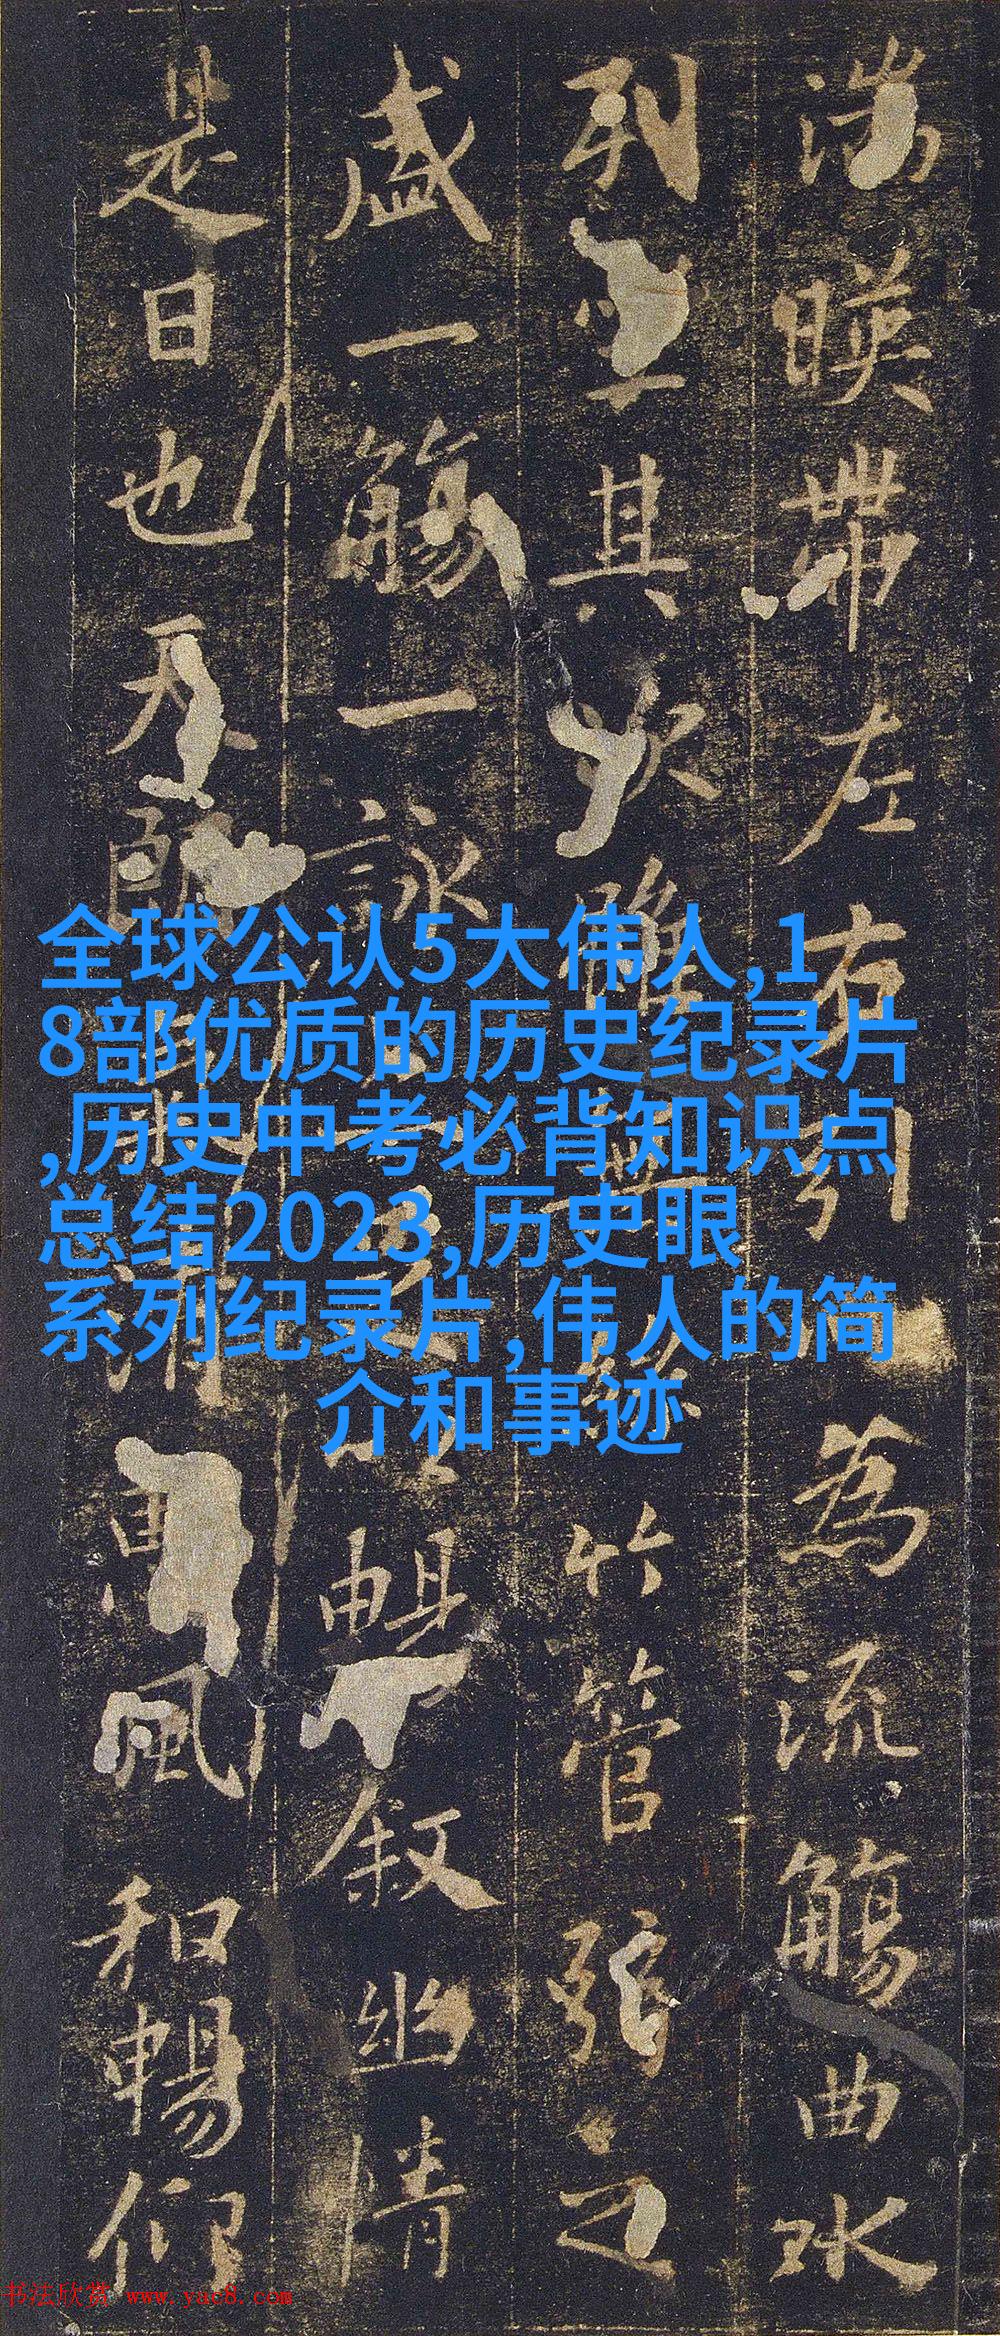 湍暎帶左右引為流觴曲水
列坐其次雖竹管弦之
盛一觴一詠暢敘幽情
是日也天朗清惠風和暢仰
全球公认5大伟人,1
8部优质的历史纪录片
,历史中考必背知识点
总结2023,历史眼
系列纪录片,伟人的简
介和事迹
书法欣赏 www.yac8.com